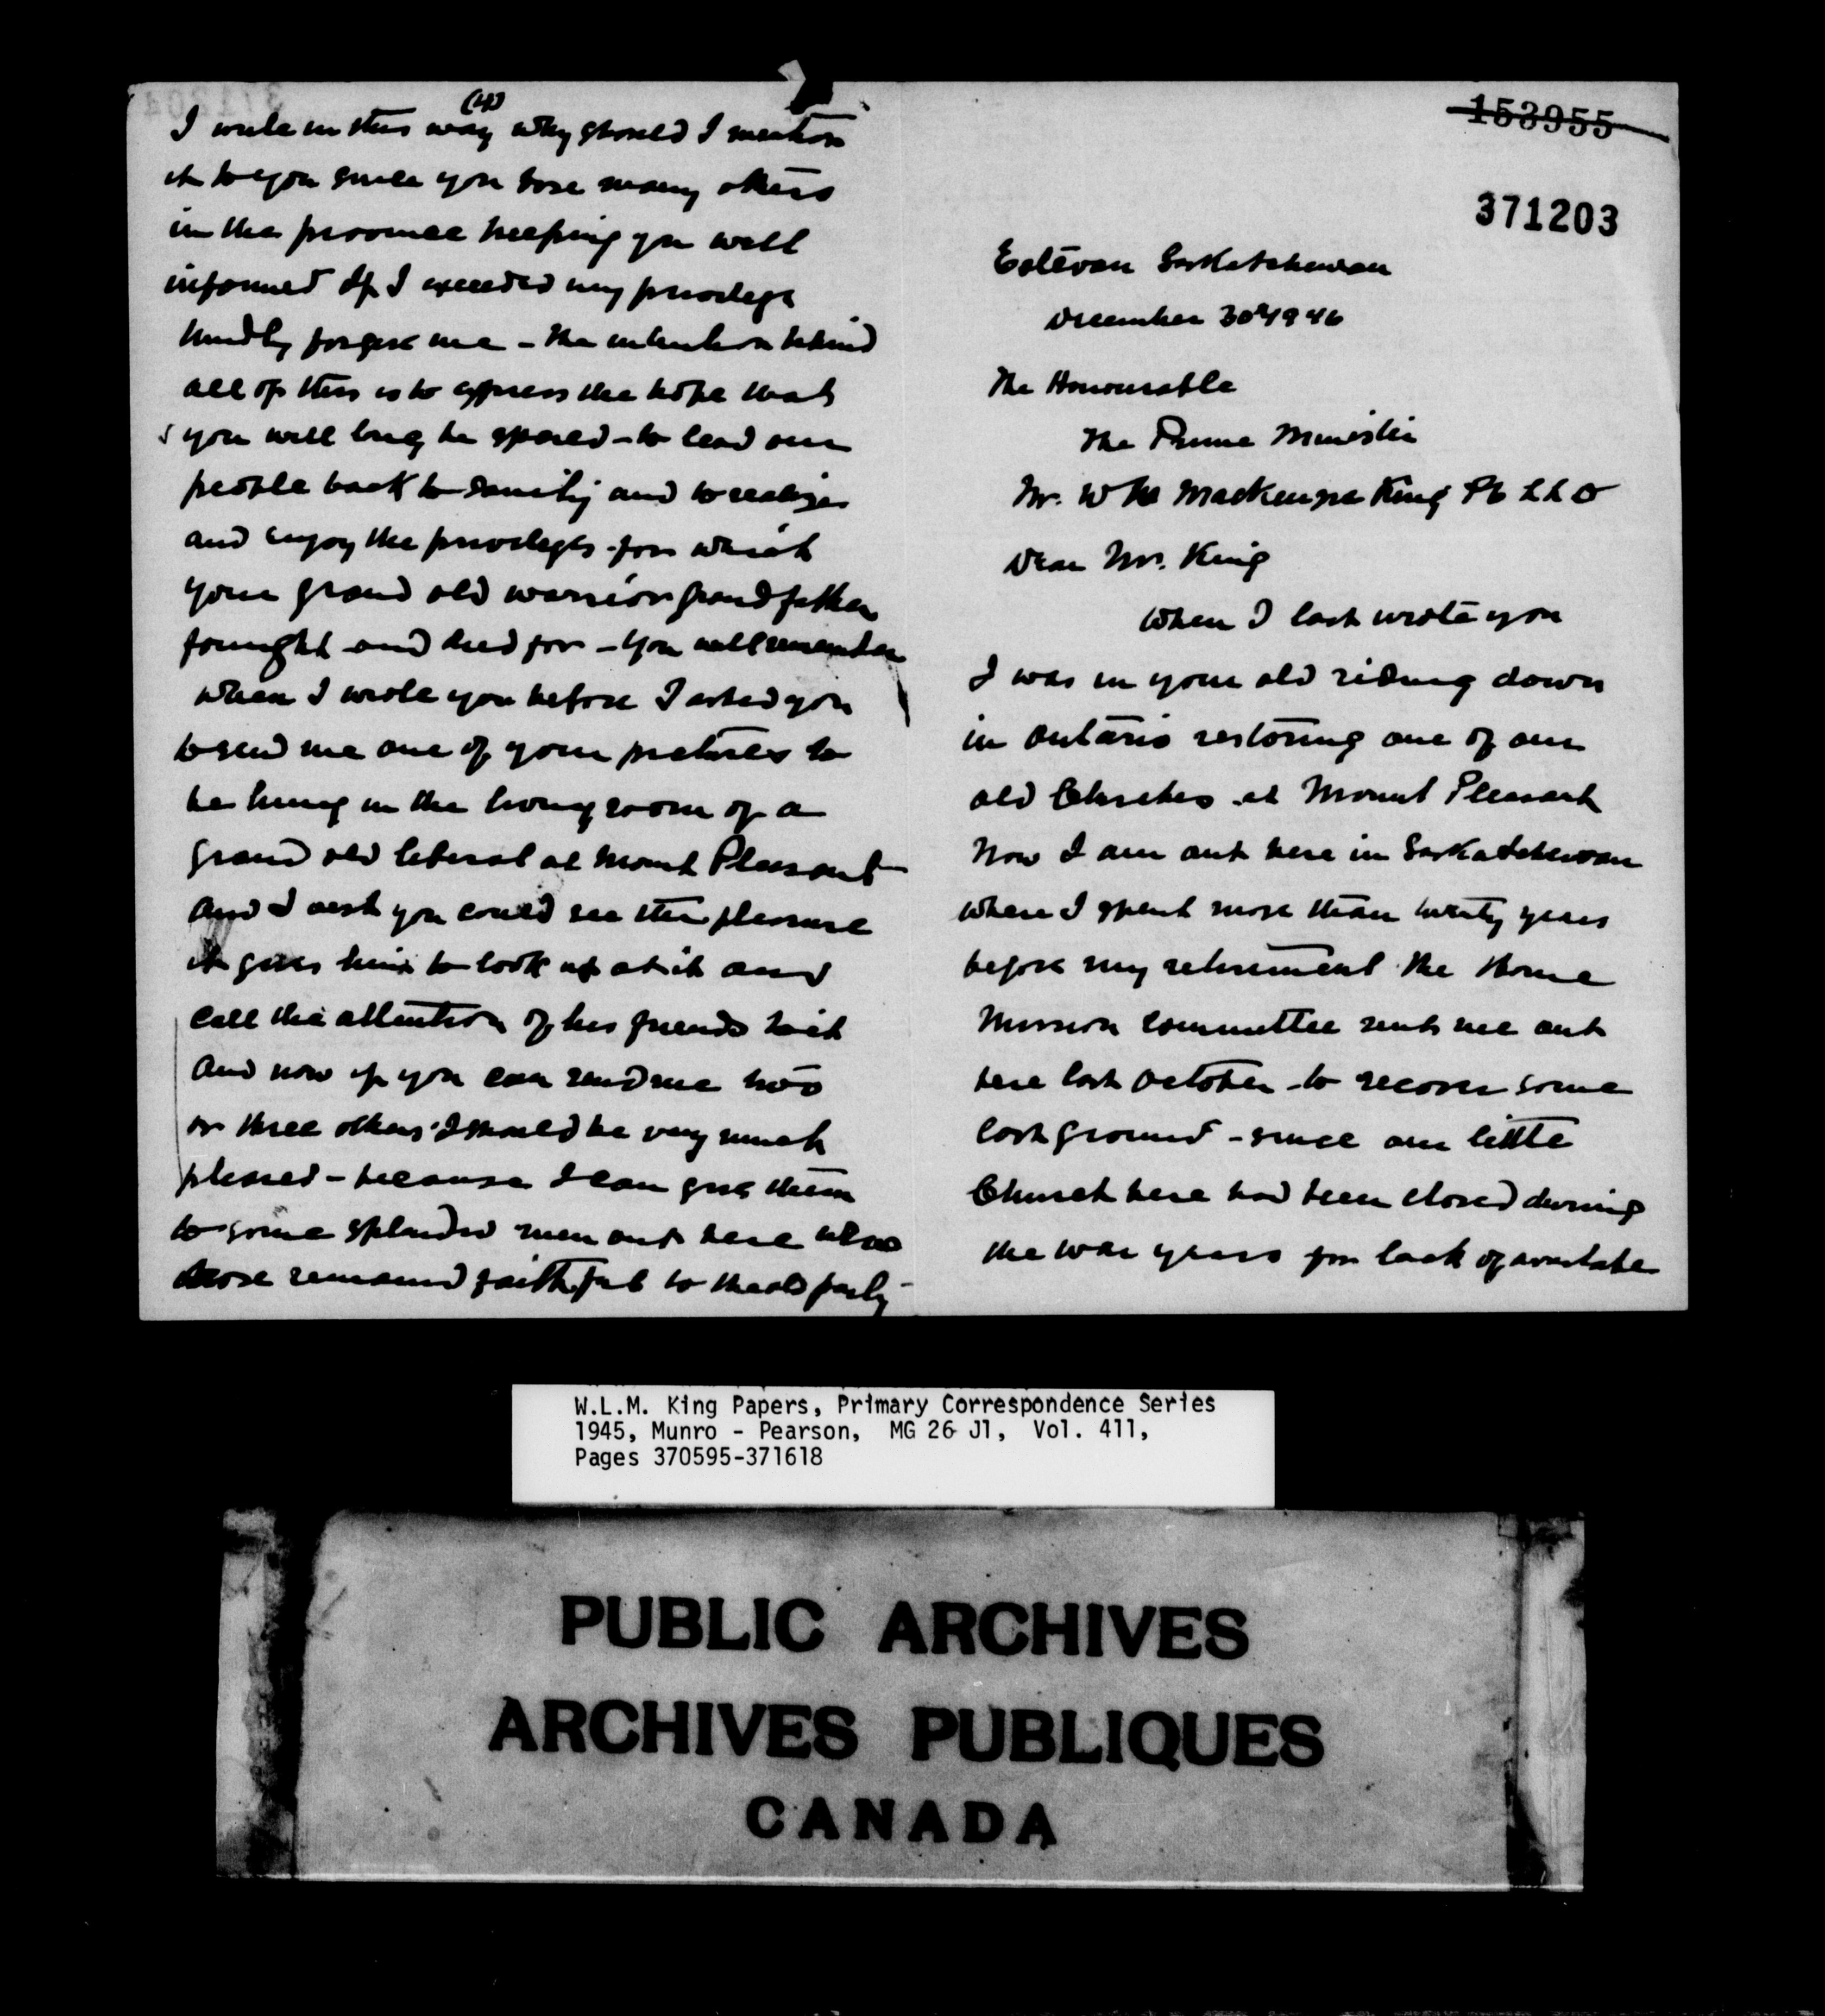 (4)
I write in this way why should I mention
it to you since you have many others
in the province keeping you well
informed If I exceeded my privilege
kindly forgive me - the intention behind
all of this is to express the hope that
you will long be spared - to lead our
people back to sanity and to realize
and enjoy the privileges for which
your grand old warrior grandfather
fought and died for - You will remember
when I wrote you before I asked you
to send me one of your pictures to
be hung in the living room of a
grand old liberal at Mount Pleasant
And I wish you could see the pleasure
it gives him to look up at it and
call the attention of his friends to it
And now if you can send me two
or three others I should be very much
pleased - because I can give them
to some splendid men out here who
have remained faithful to the old party -
153955
371203
Estevan Saskatchewan
December 30th 1946
The Honourable
The Prime Minister
Mr. W M Mackenzie King PC LLD
Dear Mr. King
When I last wrote you
I was in your old riding down
in Ontario restoring one of our
old Churches at Mount Pleasant
Now I am out here in Saskatchewan
where I spent more than twenty years
before my retirement The Home
Mission Committee sent me out
here last October to recover some
lost ground - since our little
Church here had been closed during
the war years for lack of available
W.L.M. King Papers, Primary Correspondence Series
1945, Munro - Pearson, MG 26 J1, Vol. 411,
Pages 370595-371618
PUBLIC ARCHIVES
ARCHIVES PUBLIQUES
CANADA